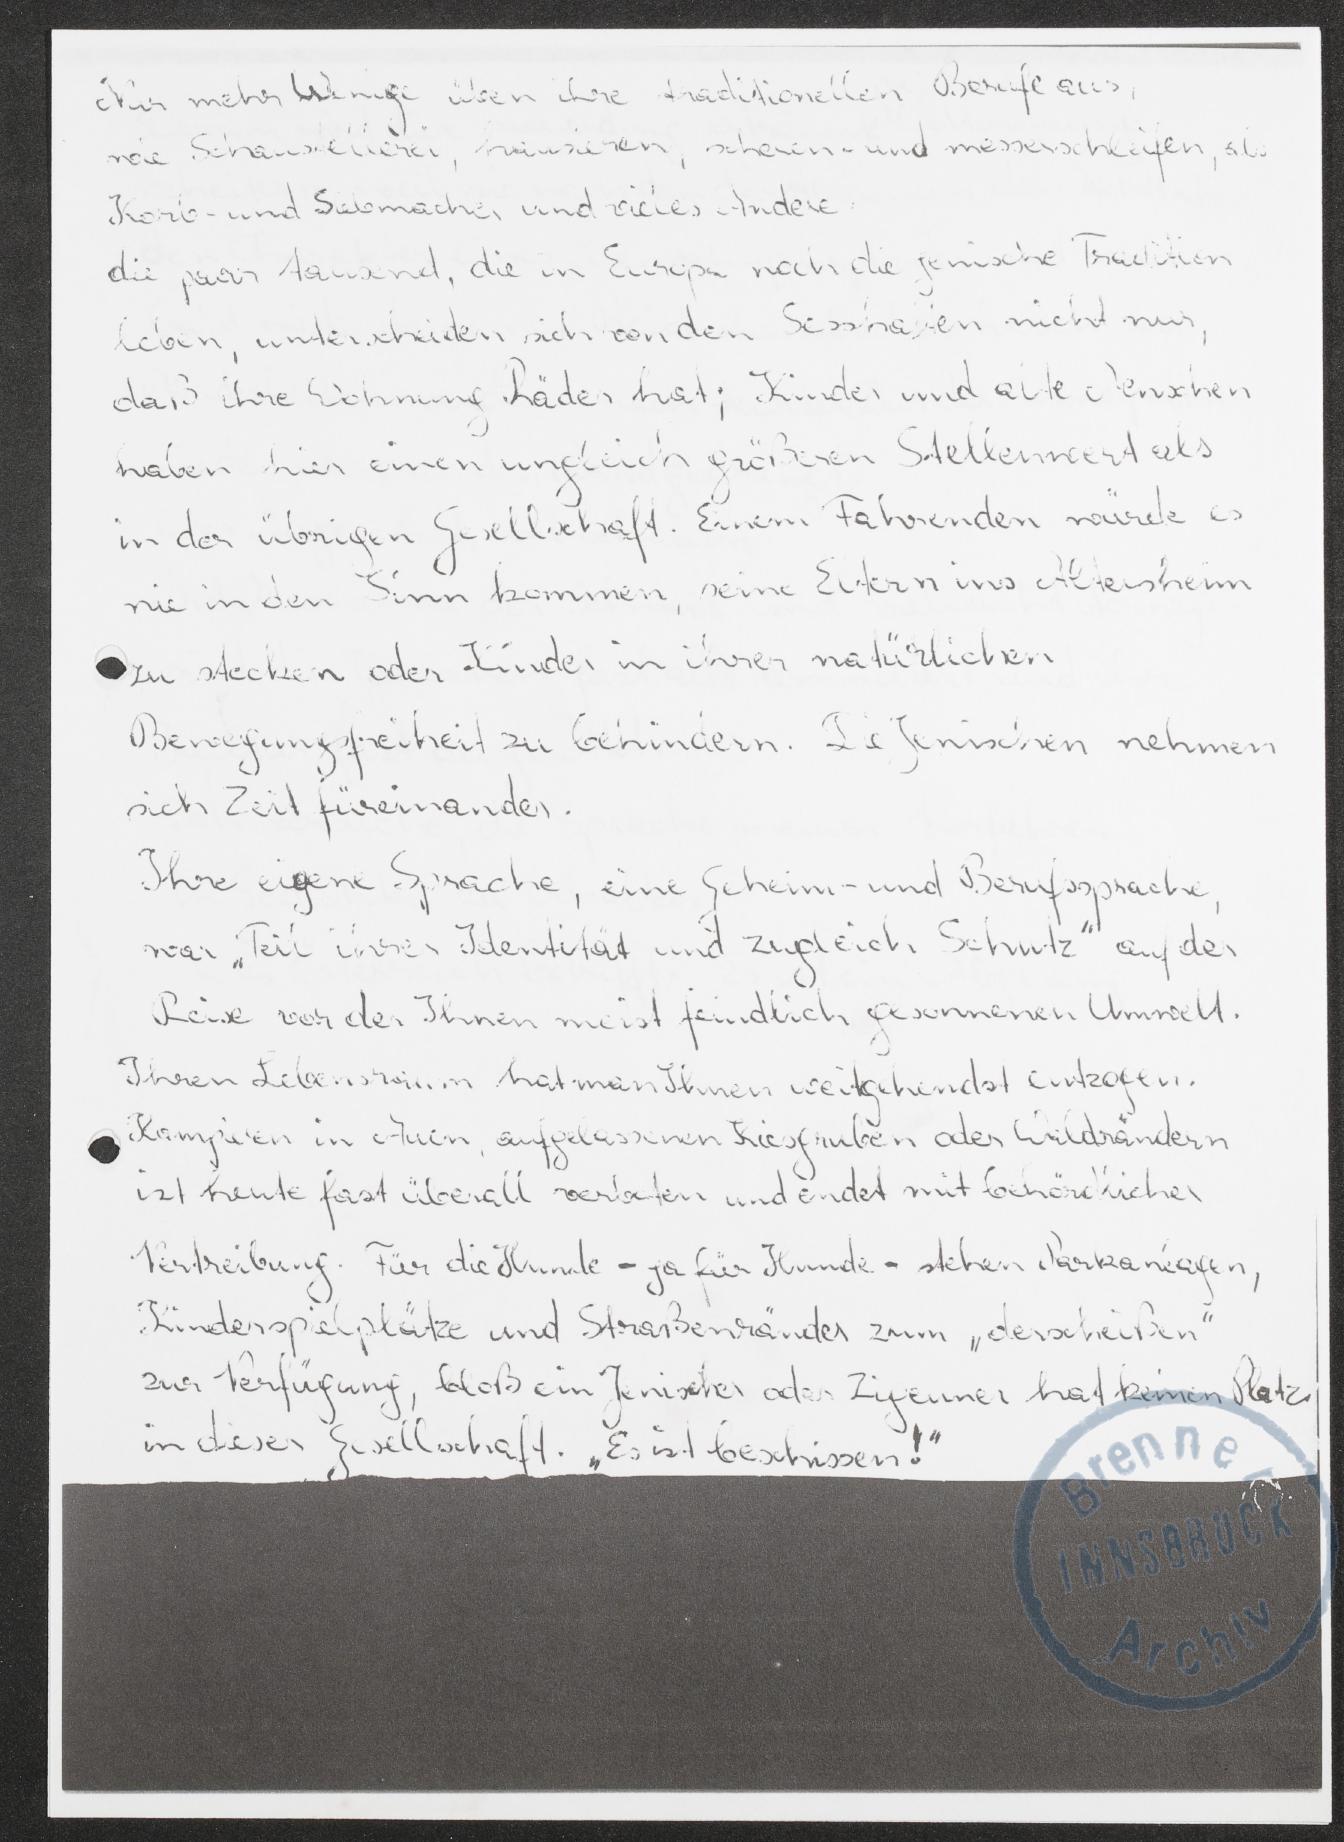 Nur mehr Wenige üben ihre traditionellen Berufe aus,
wie Schaustellerei, hausieren, scheren- und messerschleifen, als
Korb- und Siebmacher und vieles Andere.
die paar tausend, die in Europa noch die jenische Tradition
leben, unterscheiden sich von den Sesshaften nicht nur,
daß ihre Wohnung Räder hat; Kinder und alte Menschen
haben hier einen ungleich größeren Stellenwert als
in der übrigen Gesellschaft. Einem Fahrenden würde es
nie in den Sinn kommen, seine Eltern ins Altersheim
zu stecken oder Kinder in ihrer natürlichen
Bewegungsfreiheit zu behindern. Die Jenischen nehmen
sich Zeit füreinander.
Ihre eigene Sprache, eine Geheim- und Berufssprache,
war „Teil ihrer Identität und zugleich Schutz" auf der
Reise vor der Ihnen meist feindlich gesonnenen Umwelt.
Ihren Lebensraum hat man Ihnen weitgehendst entzogen.
Kampieren in Auen, aufgelassenen Kiesgruben oder Waldrändern
ist heute fast überall verboten und endet mit behördlicher
Vertreibung. Für die Hunde - ja für Hunde - stehen Parkanlagen,
Kinderspielplätze und Straßenränder zum „derscheißen"
zur Verfügung, bloß ein Jenischer oder Zigeuner hat keinen Platz
in dieser Gesellschaft. „Es ist beschissen!"
Brenner
INNSBRUCK
Archiv